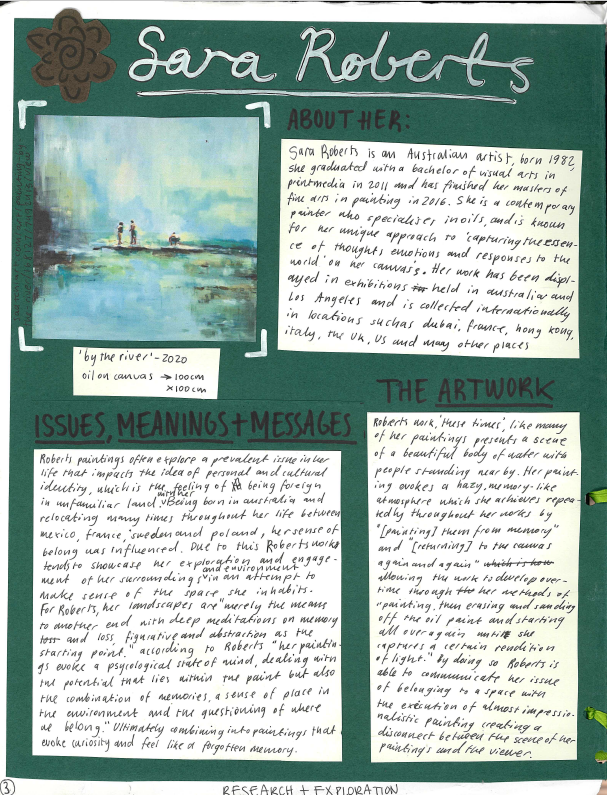 Sara Roberts
ABOUT HER:
Sara Roberts is an Australian artist, born 1982,
she graduated with a bachelor of visual arts in
printmedia in 2011 and has finished her masters of
fine arts in painting in 2016. She is a contemporary
painter who specialises in oils, and is known
for her unique approach to 'capturing the essen-
ce of thoughts emotions and responses to the
world' on her canvass. Her work has been displ-
ayed in exhibitions held in australia and
Los Angeles and is collected internationally
in locations such as dubai, france, hong kong,
italy, the UK, US and many other places
'by the river' - 2020
oil on canvas → 100cm
x 100cm
ISSUES, MEANINGS + MESSAGES
Roberts paintings often explore a prevalent issue in her
life that impacts the idea of personal and cultural
identity, which is the feeling of being foreign
in unfamiliar land. with her Being born in australia and
relocating many times throughout her life between
mexico, france, sweden and poland, her sense of
belong was influenced. Due to this Roberts works
tends to showcase her exploration and engage-
ment of her surroundings and environment in an attempt to
make sense of the space she inhabits.
For Roberts, her landscapes are "merely the means
to another end with deep meditations on memory
loss and loss, figurative and abstraction as the
starting point." according to Roberts "her paintin-
gs evoke a psycological state of mind, dealing with
the potential that lies within the paint but also
the combination of memories, a sense of place in
the environment and the questioning of where
we belong." Ultimately combining into paintings that
evoke curiosity and feel like a forgotten memory.
THE ARTWORK
Roberts work, 'these times', like many
of her paintings presents a scene
of a beautiful body of water with
people standing near by. Her paint-
ing evokes a hazy, memory-like
atmosphere which she achieves repea-
tedly throughout her works by
"[painting] them from memory"
and "[returning] to the canvas
again and again" which is how
allowing the work to develop over-
time through the her methods of
"painting, then erasing and sanding
off the oil paint and starting
all over again until she
captures a certain rendition
of light." by doing so Roberts is
able to communicate her issue
of belonging to a space with
the execution of almost impressio-
nalistic painting creating a
disconnect between the scene of her
painting's and the viewer.
3
RESEARCH + EXPLORATION